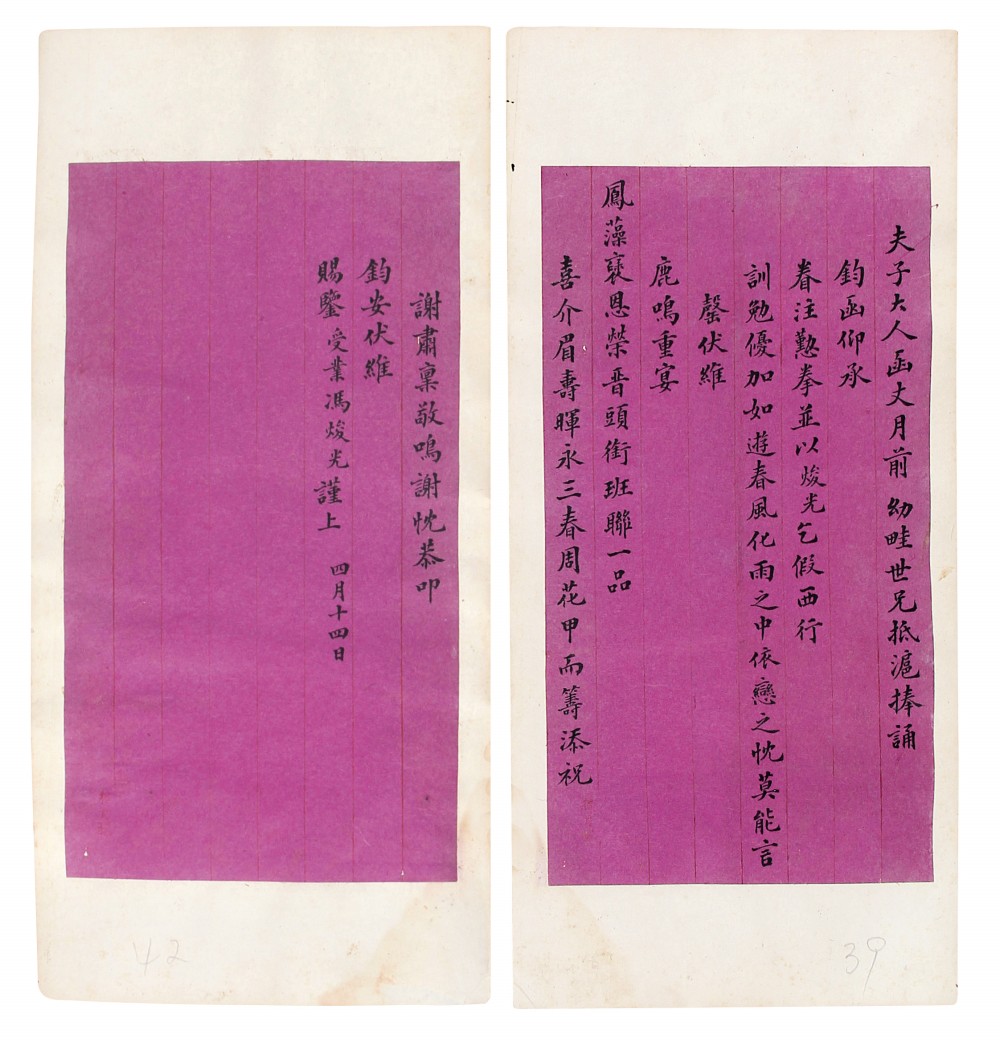 夫子大人函丈月前幼畦世兄抵滬捧誦
鈞函仰承
眷注懃拳並以焌光乞假西行
訓勉優加如遊春風化雨之中依戀之忱莫能言
罄伏維
鹿鳴重宴
鳳藻褒恩榮晋頭銜班聯一品
喜介眉壽暉永三春周花甲而籌添祝
謝肅稟敬鳴謝忱恭叩
鈞安伏維
賜鑒受業馮焌光謹上 四月十四日
39
42